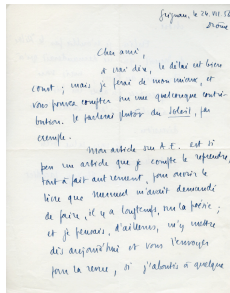 Grignan, le 24. VII. 56
Drôme
Cher ami,
à vrai dire, le délai est bien
court ; mais je ferai de mon mieux, et
vous pouvez compter sur une quelconque contri-
bution. Je parlerai plutôt du Soleil, par
exemple.
Mon article sur A.E. est si
peu un article que je compte le reprendre,
tout à fait autrement, pour ouvrir le
livre que Mermod m'avait demandé
de faire, il y a longtemps, sur la poésie ;
et je pensais, d'ailleurs, m'y mettre
dès aujourd'hui et vous l'envoyer
pour la revue, si j'aboutis à quelque